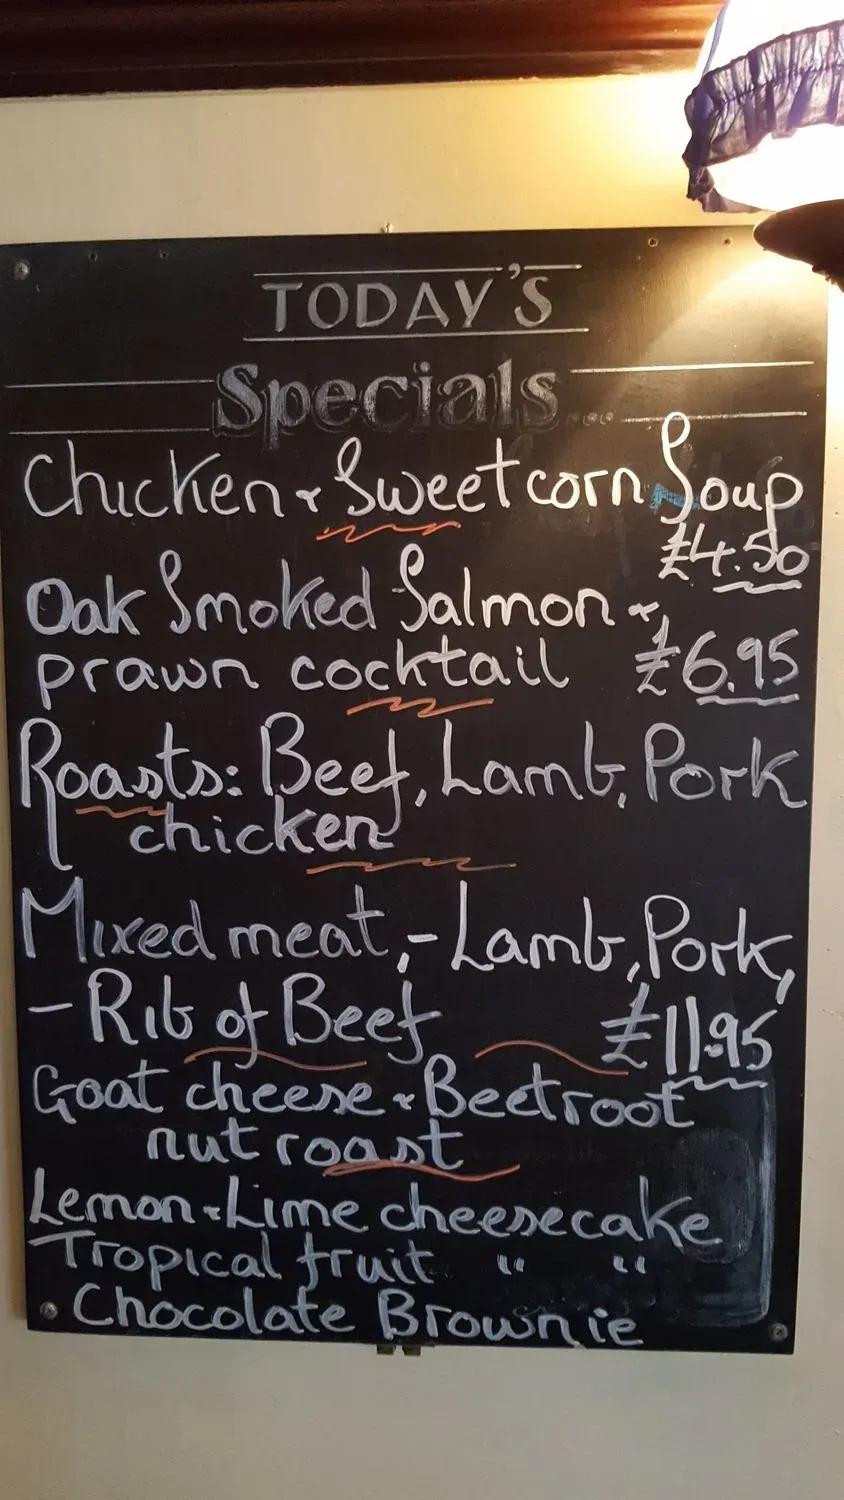 TODAY'S
Specials...
Chicken & Sweetcorn Soup
£4.50
Oak Smoked Salmon &
prawn cocktail £6.95
Roasts: Beef, Lamb, Pork
chicken
Mixed meat,- Lamb, Pork,
- Rib of Beef £11.95
Goat cheese & Beetroot
nut roast
Lemon & Lime cheesecake
Tropical fruit " "
Chocolate Brownie